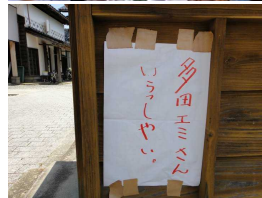 多田エミさん
いらっしゃい。